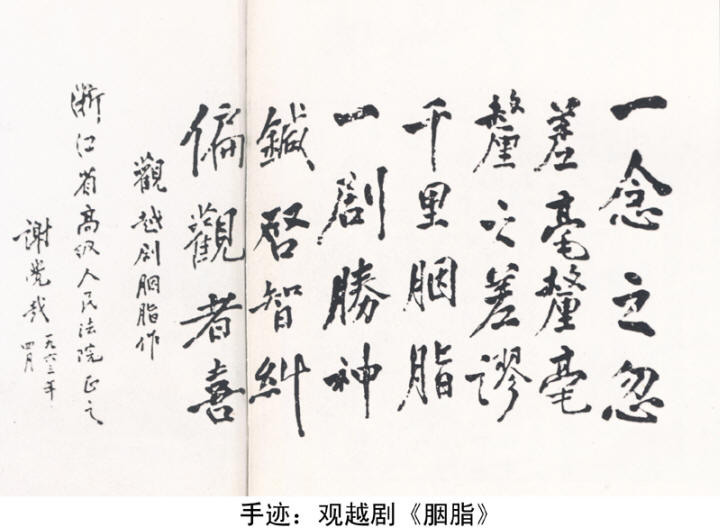 一念之忽
差毫釐毫
釐之差謬
千里胭脂
一剧勝神
鍼啓智糾
偏觀者喜
觀越剧胭脂作
浙江省高级人民法院正之
謝觉哉 一九六三年
四月
手迹：观越剧《胭脂》